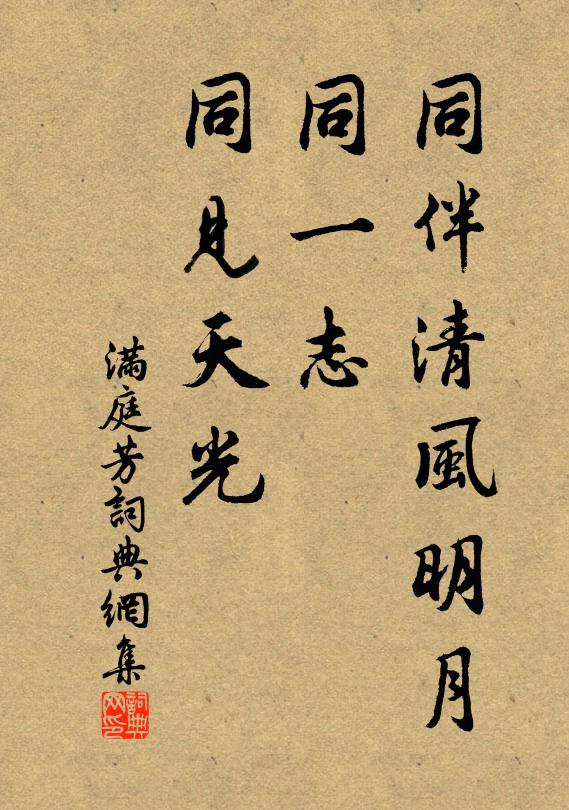 同伴清風明月
同一志
同見天光
滿庭芳詞典網集
詞典
网印